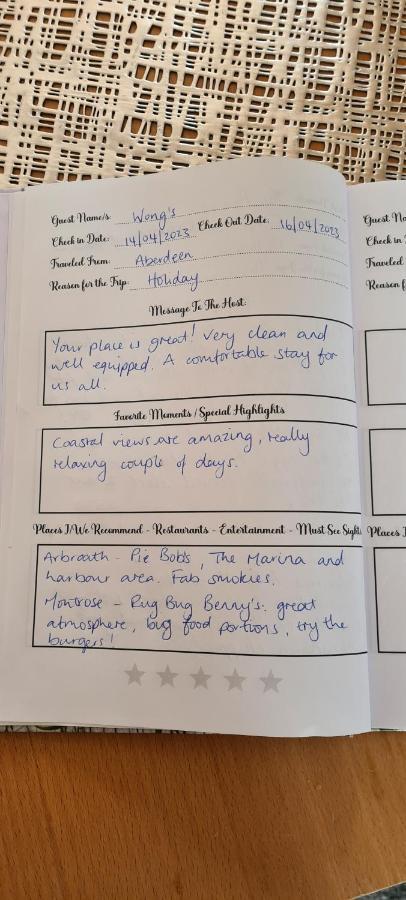 Guest Name/s: Wong's
Check in Date: 14/04/2023 Check Out Date: 16/04/2023
Traveled From: Aberdeen
Reason for the Trip: Holiday
Message To The Host:
Your place is great! Very clean and
well equipped. A comfortable stay for
us all.
Favorite Moments / Special Highlights
Coastal views are amazing, really
relaxing couple of days.
Places I/We Recommend - Restaurants - Entertainment - Must See Sights
Arbroath - Pie Bob's, The Marina and
harbour area. Fab smokies.
Montrose - Rug Bug Benny's: great
atmosphere, big food portions, try the
burgers!
Guest Na
Check in
Traveled
Reason f
Places I